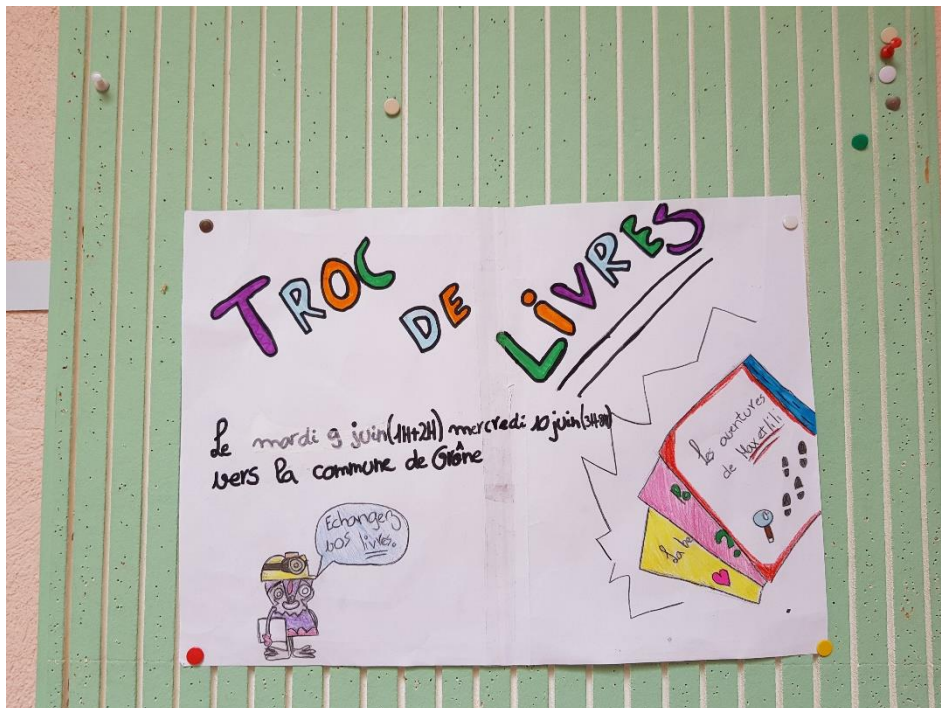 TROC DE LIVRES
Le mardi 9 juin (1H+2H) mercredi 10 juin (3H+8H)
vers la commune de Grône
Echangez
vos livres.
Les aventures
de Max et lili
La be